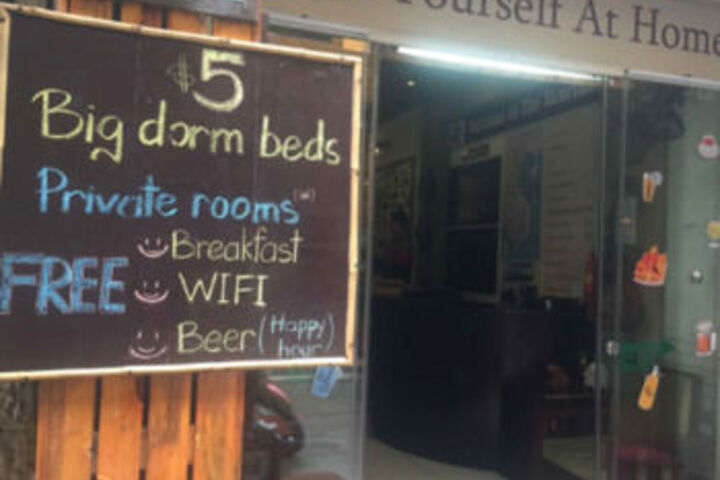 Yourself At Home
$5
Big dorm beds
Private rooms
Breakfast
FREE WIFI
Beer (Happy hour)